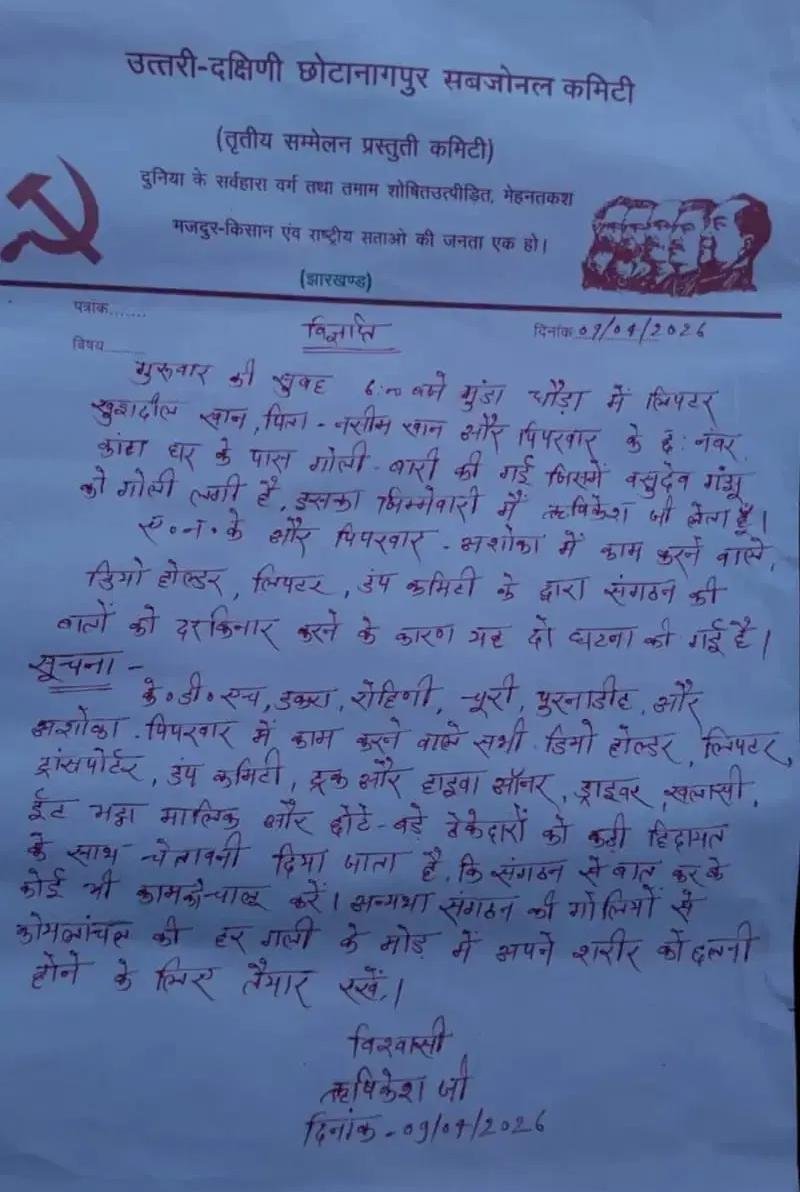 उत्तरी-दक्षिणी छोटानागपुर सबजोनल कमिटी
(तृतीय सम्मेलन प्रस्तुती कमिटी)
दुनिया के सर्वहारा वर्ग तथा तमाम शोषितउत्पीड़ित, मेहनतकश
मजदुर-किसान एंव राष्ट्रीय सताओ की जनता एक हो।
(झारखण्ड)
पत्रांक.......
विज्ञप्ति
दिनांक 09/04/2026
विषय.......
गुरूवार की सुबह 6:00 बजे मुंडा धौड़ा में लिफ्टर
खुशदील खान, पिता - नसीम खान और पिपरवार के छ: नंबर
कांटा घर के पास गोली-बारी की गई जिसमें वसुदेव गंझू
को गोली लगी है, इसका जिम्मेवारी मैं ऋषिकेश जी लेता हूँ।
ए॰न॰के और पिपरवार-अशोका में काम करने वाले,
डियो होल्डर, लिफ्टर, डंप कमिटी के द्वारा संगठन की
बातों को दरकिनार करने के कारण यह दो घटना की गई है।
सूचना -
के॰डी॰एच, डकरा, रोहिणी, चूरी, पुरनाडीह, और
अशोका-पिपरवार में काम करने वाले सभी डियो होल्डर, लिफ्टर,
ट्रांसपोर्टर, डंप कमिटी, ट्रक और हाइवा ऑनर, ड्राइवर, खलासी,
ईट भट्ठा मालिक और छोटे-बड़े ठेकेदारों को कड़ी हिदायत
के साथ चेतावनी दिया जाता है, कि संगठन से बात कर के
कोई भी काम को चालू करें। अन्यथा संगठन की गोलियों से
कोयलांचल की हर गली के मोड़ में अपने शरीर को छलनी
होने के लिए तैयार रखें,।
विश्वासी
ऋषिकेश जी
दिनांक - 09/04/2026